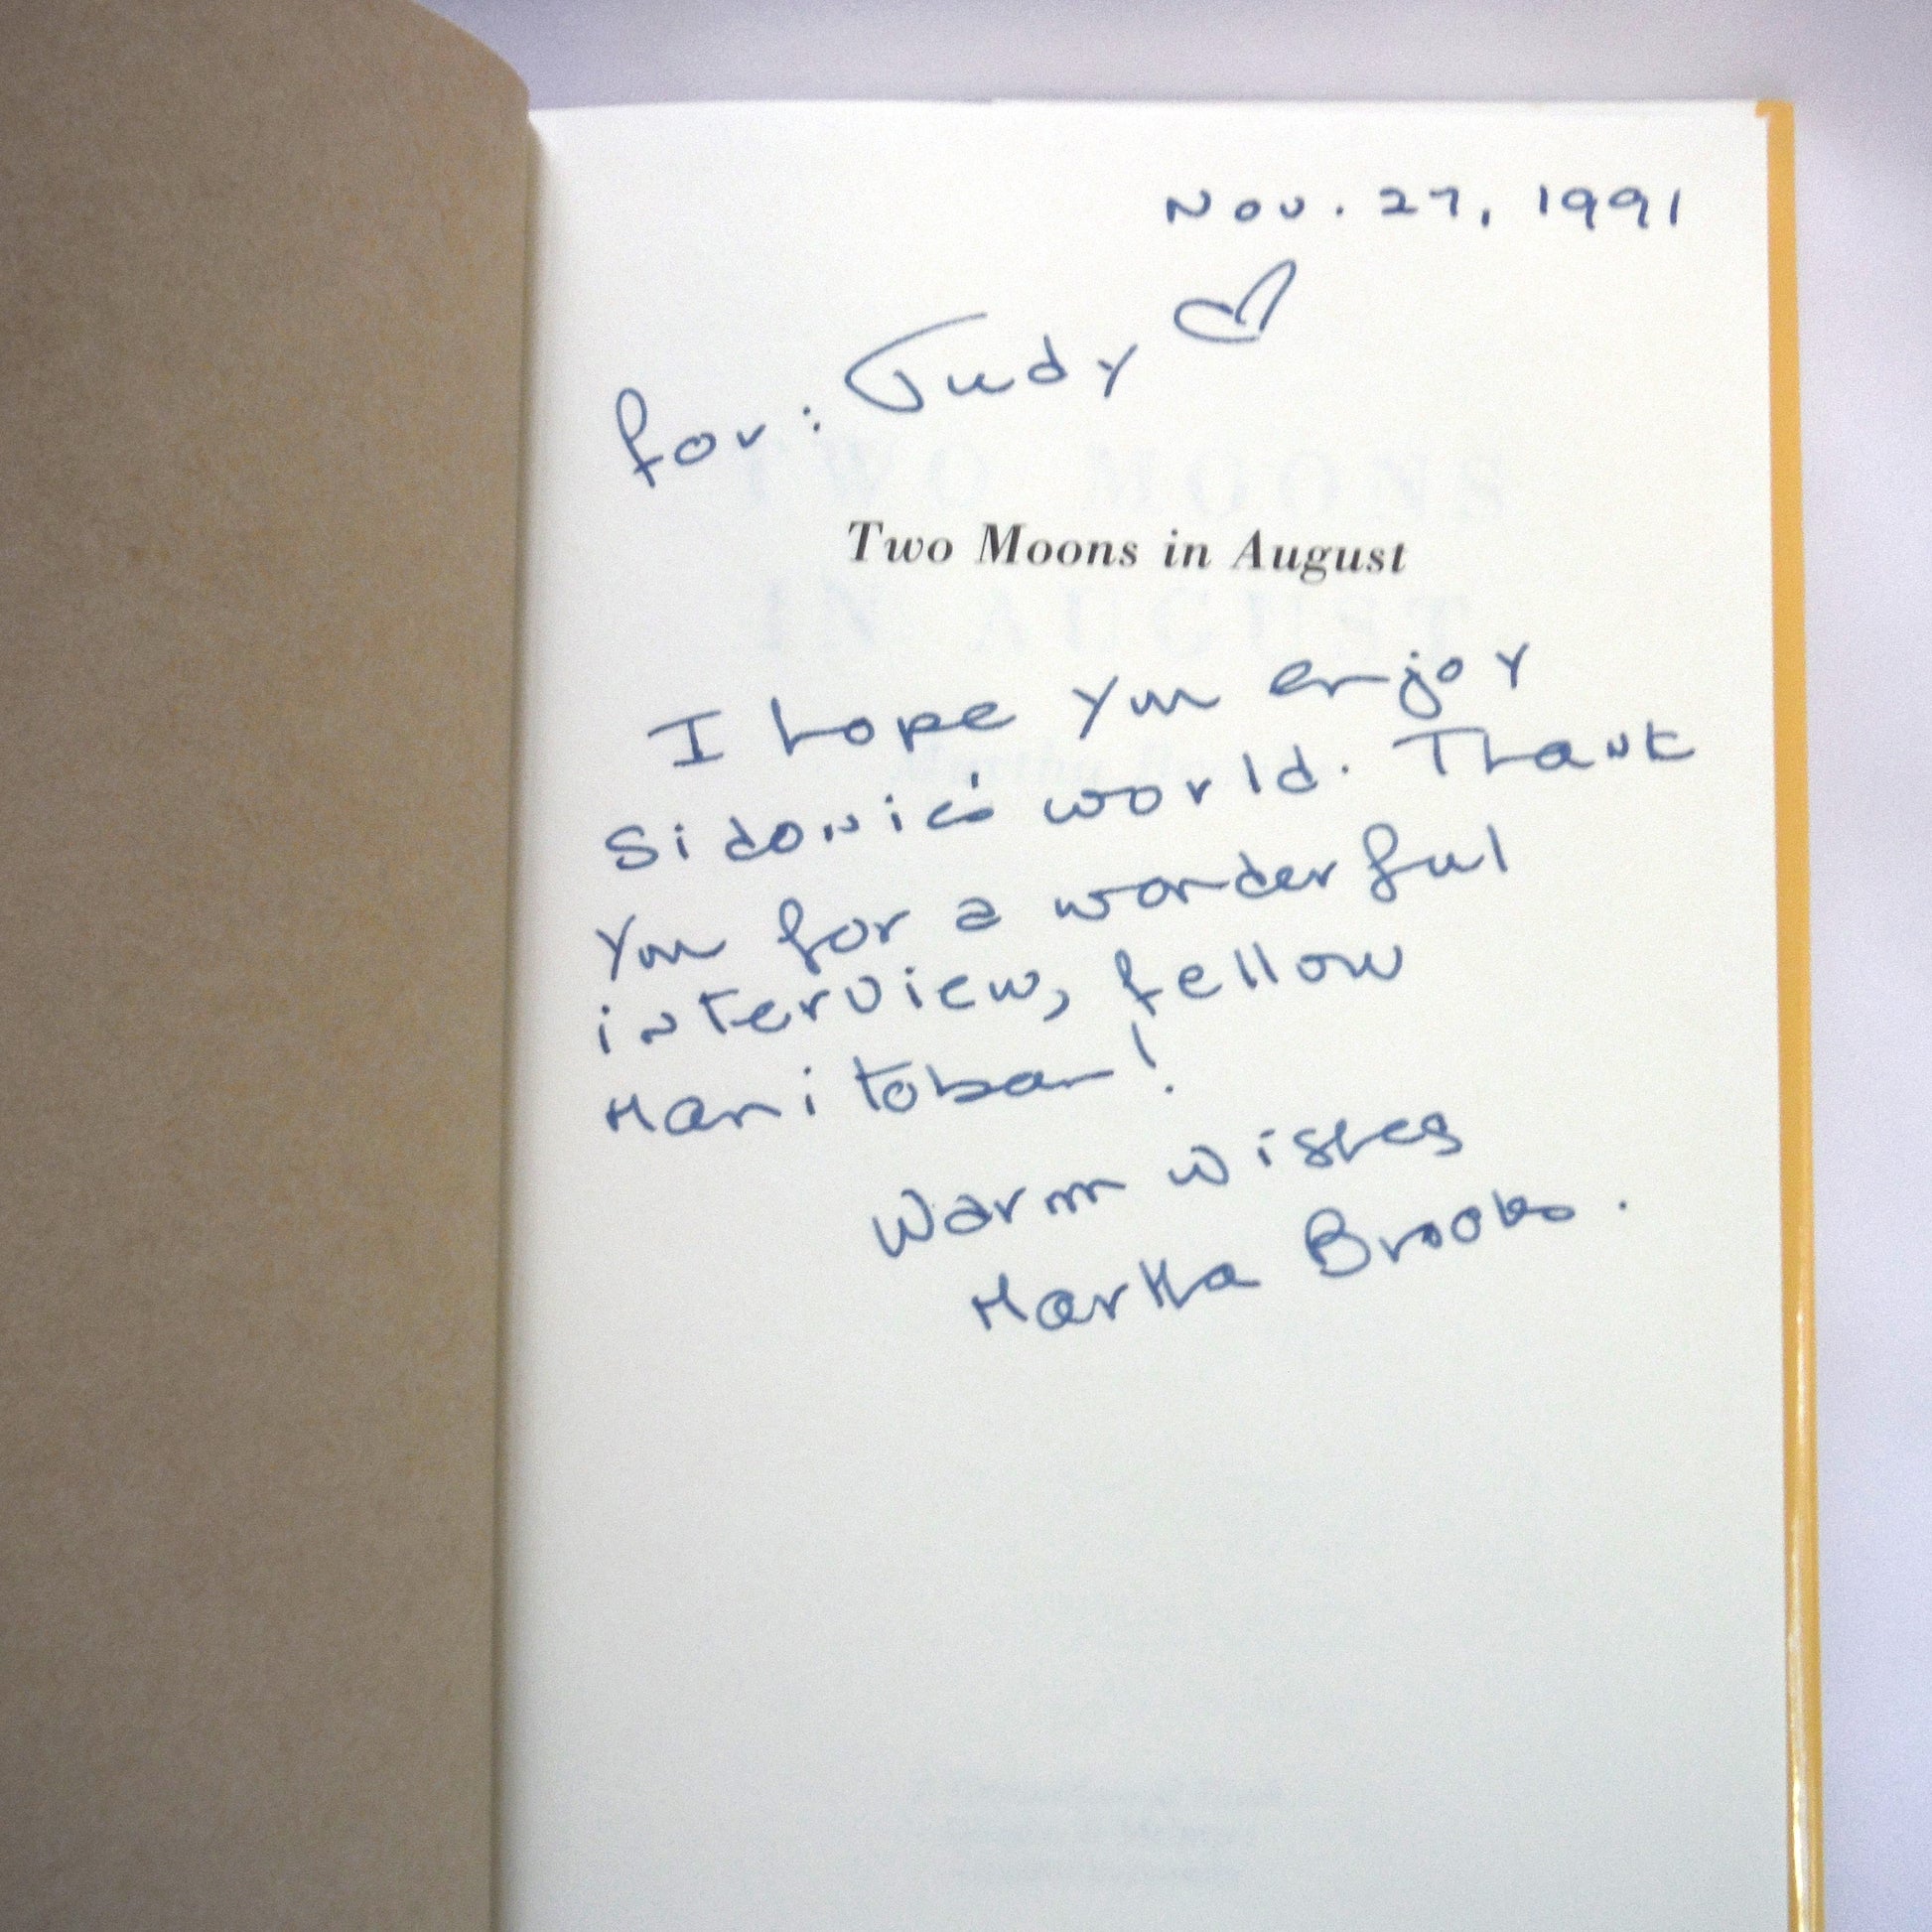 Nov. 27, 1991
for: Judy
Two Moons in August
I hope you enjoy
Sidonie's world. Thank
you for a wonderful
interview, fellow
Manitoban!
Warm wishes
Martha Brooks.
TWO MOONS
IN AUGUST